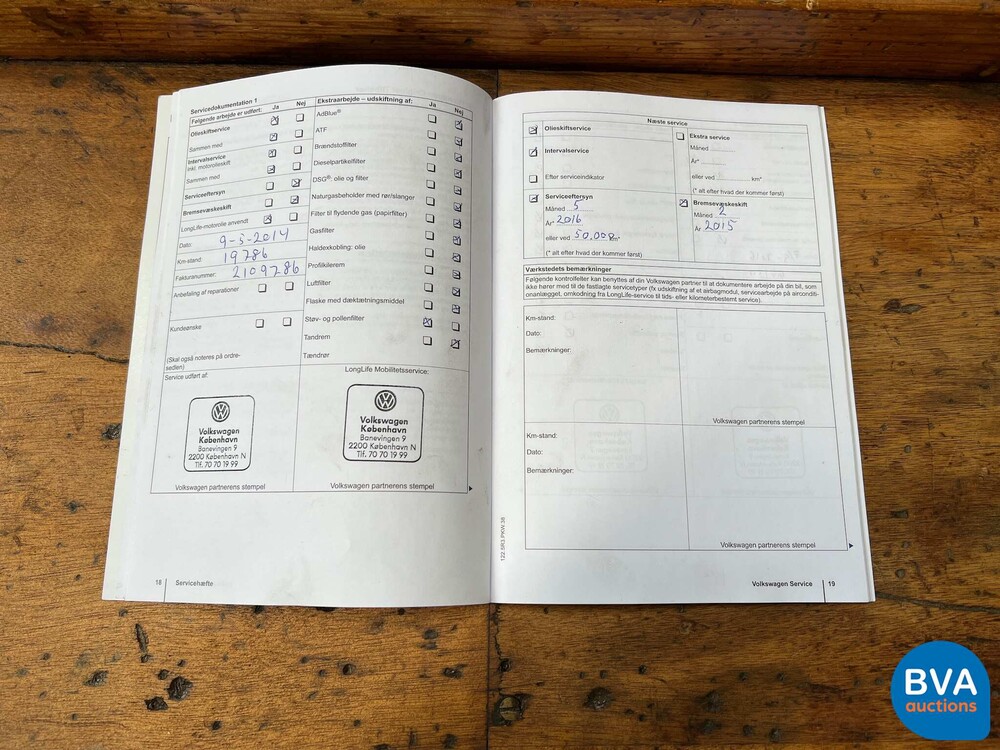 Servicedokumentation 1
Følgende arbejde er udført: Ja Nej
Olieskiftservice
Sammen med
Intervalservice
inkl. motorolieskift
Sammen med
Serviceeftersyn
Bremsevæskeskift
LongLife-motorolie anvendt
Dato: 9-5-2014
Km-stand 19786
Fakturanummer: 2109786
Anbefaling af reparationer
Kundeønske
(Skal også noteres på ordre-
sedlen)
Service udført af:
Volkswagen
København
Banevingen 9
2200 København N
Tlf. 70 70 19 99
Volkswagen partnerens stempel
Ekstraarbejde – udskiftning af: Ja Nej
AdBlue®
ATF
Brændstoffilter
Dieselpartikelfilter
DSG®: olie og filter
Naturgasbeholder med rør/slanger
Filter til flydende gas (papirfilter)
Gasfilter
Haldexkobling: olie
Profilkilerem
Luftfilter
Flaske med dæktætningsmiddel
Støv- og pollenfilter
Tandrem
Tændrør
LongLife Mobilitetsservice:
Volkswagen
København
Banevingen 9
2200 København N
Tlf. 70 70 19 99
Volkswagen partnerens stempel
18 Servicehæfte
Næste service
Olieskiftservice
Intervalservice
Efter serviceindikator
Ekstra service
Måned
År*
eller ved km*
(* alt efter hvad der kommer først)
Serviceeftersyn
Måned 5
År* 2016
eller ved 50.000 km*
(* alt efter hvad der kommer først)
Bremsevæskeskift
Måned 2
År 2015
Værkstedets bemærkninger
Følgende kontrolfelter kan benyttes af din Volkswagen partner til at dokumentere arbejde på din bil, som
ikke hører med til de fastlagte servicetyper (fx udskiftning af et airbagmodul, servicearbejde på airconditi-
onanlægget, omkodning fra LongLife-service til tids- eller kilometerbestemt service).
Km-stand:
Dato:
Bemærkninger:
Volkswagen partnerens stempel
Km-stand:
Dato:
Bemærkninger:
Volkswagen partnerens stempel
122.5R3.PKW.38
Volkswagen Service 19
BVA
auctions